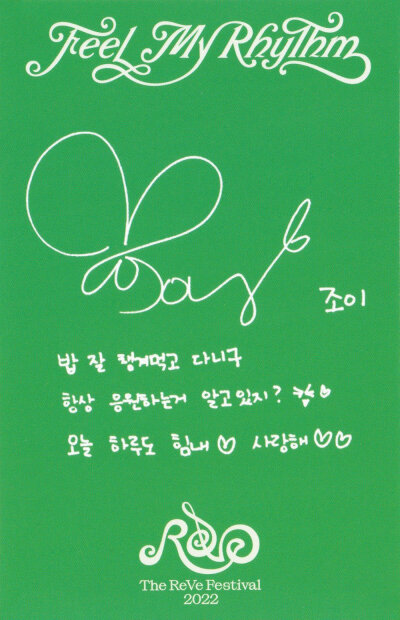 Feel My Rhythm
Joy
조이
밥 잘 챙겨먹고 다니구
항상 응원하는거 알고있지?
오늘 하루도 힘내♡ 사랑해♡♡
ReVe
The ReVe Festival
2022